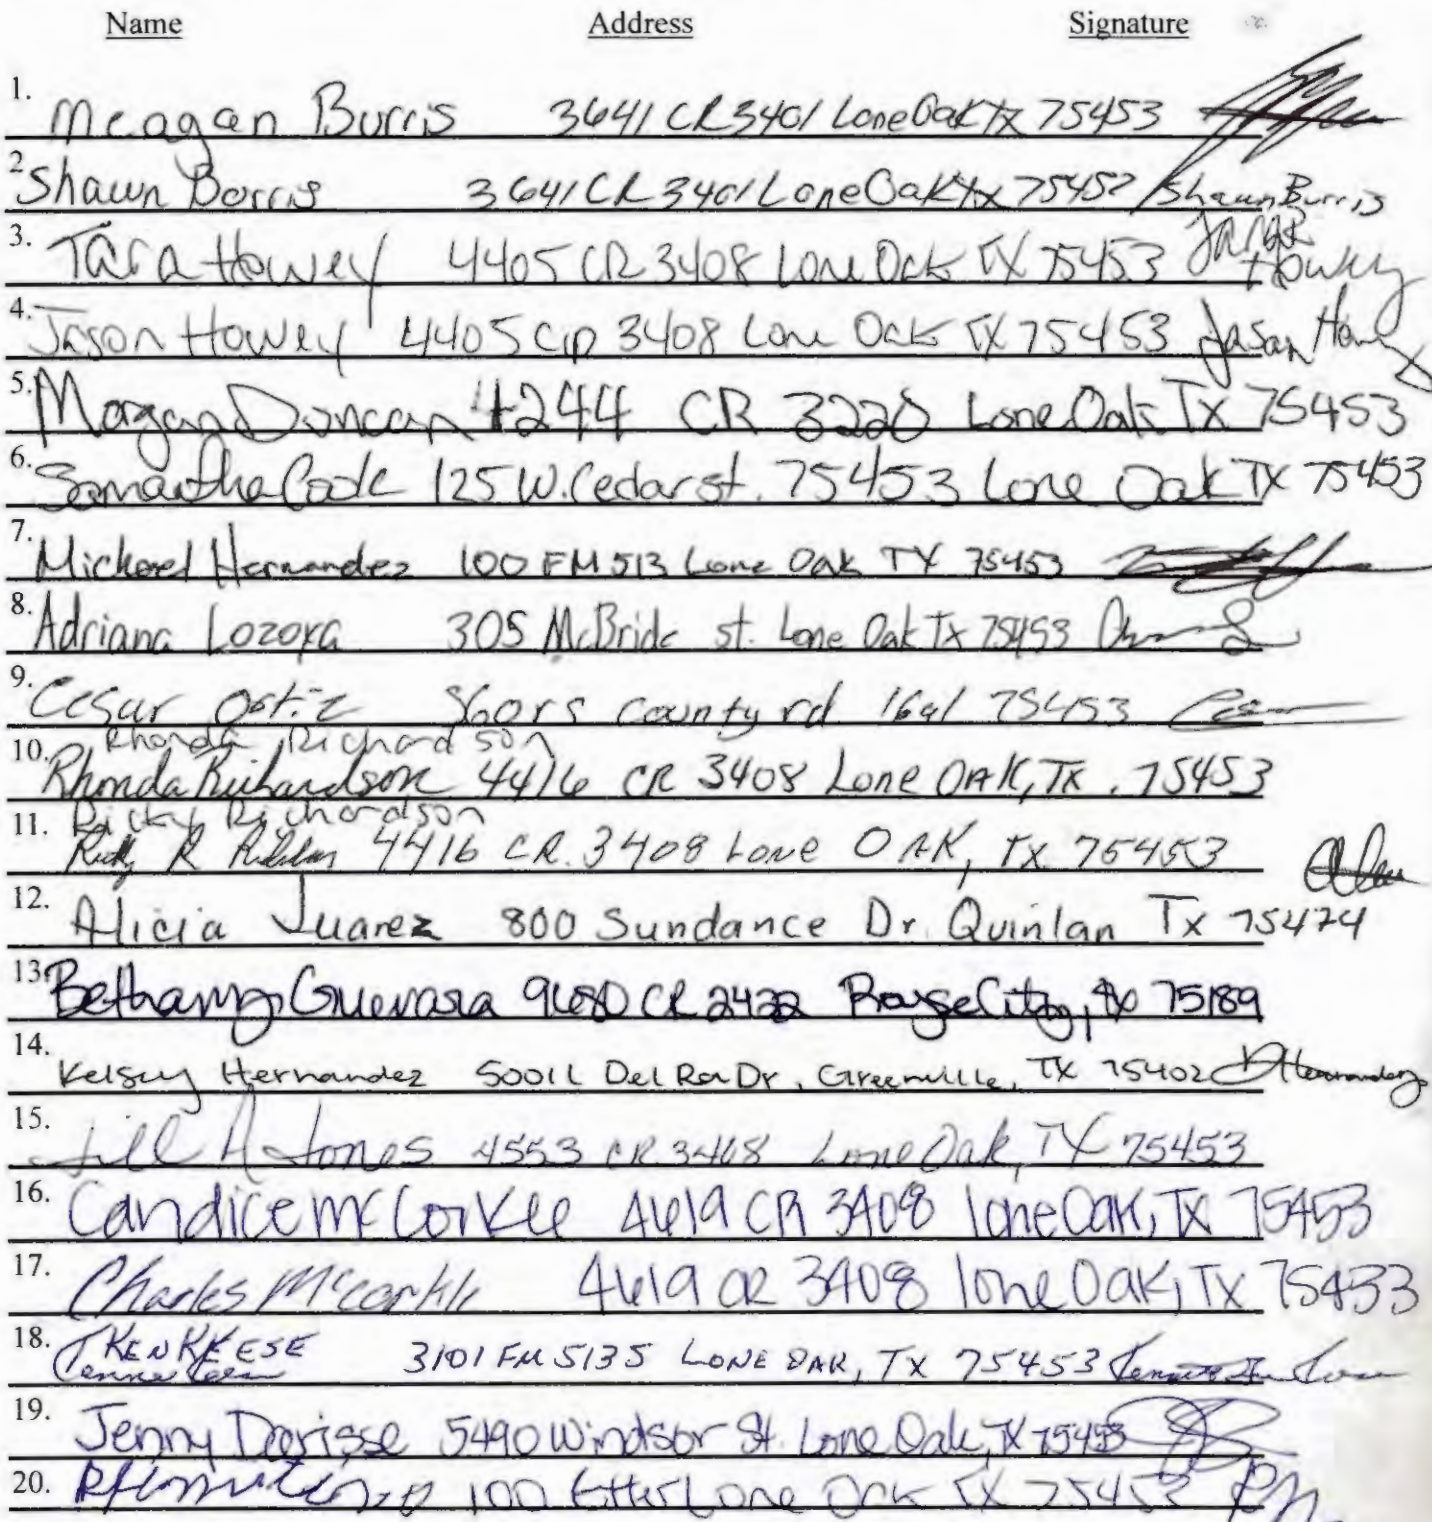 Name Address Signature
1. Meagan Burris 3641 CR 3401 Lone Oak Tx 75453
2 Shawn Burris 3641 CR 3401 Lone Oak Tx 75453 Shawn Burris
3. Tara Howey 4405 CR 3408 Lone Oak TX 75453 Tara Howey
4. Jason Howey 4405 CR 3408 Lone Oak TX 75453 Jason Howey
5. Morgan Duncan 4244 CR 3220 Lone Oak Tx 75453
6. Samantha Cook 125 W. Cedar st. 75453 Lone Oak TX 75453
7. Michael Hernandez 100 FM 513 Lone Oak TX 75453
8. Adriana Lozoya 305 McBride st. Lone Oak Tx 75453
9. Cesar Ortiz county rd 1641 75453
Rhonda Richardson
10. Rhonda Richardson 4416 CR 3408 Lone OAK, TX. 75453
Ricky Richardson
11. Ricky R 4416 CR. 3408 Lone OAK, TX 75453
12. Alicia Juarez 800 Sundance Dr. Quinlan Tx 75474
13. Bethany Guevara 9680 CR 2422 Royse City, Tx 75189
14. Kelsey Hernandez Del Rey Dr, Greenville, TX 75402 KHernandez
15. Jill A Jones 4553 CR 3408 Lone Oak, TX 75453
16. Candice McCorkle 4619 CR 3408 lone Oak, TX 75453
17. Charles McCorkle 4619 CR 3408 lone Oak, TX 75453
18. KEN KEESE 3101 FM 513 S LONE OAK, TX 75453
19. Jenny Dorisse 5490 Windsor St. Lone Oak, TX 75453
20. 100 Etter Lone Oak TX 75453